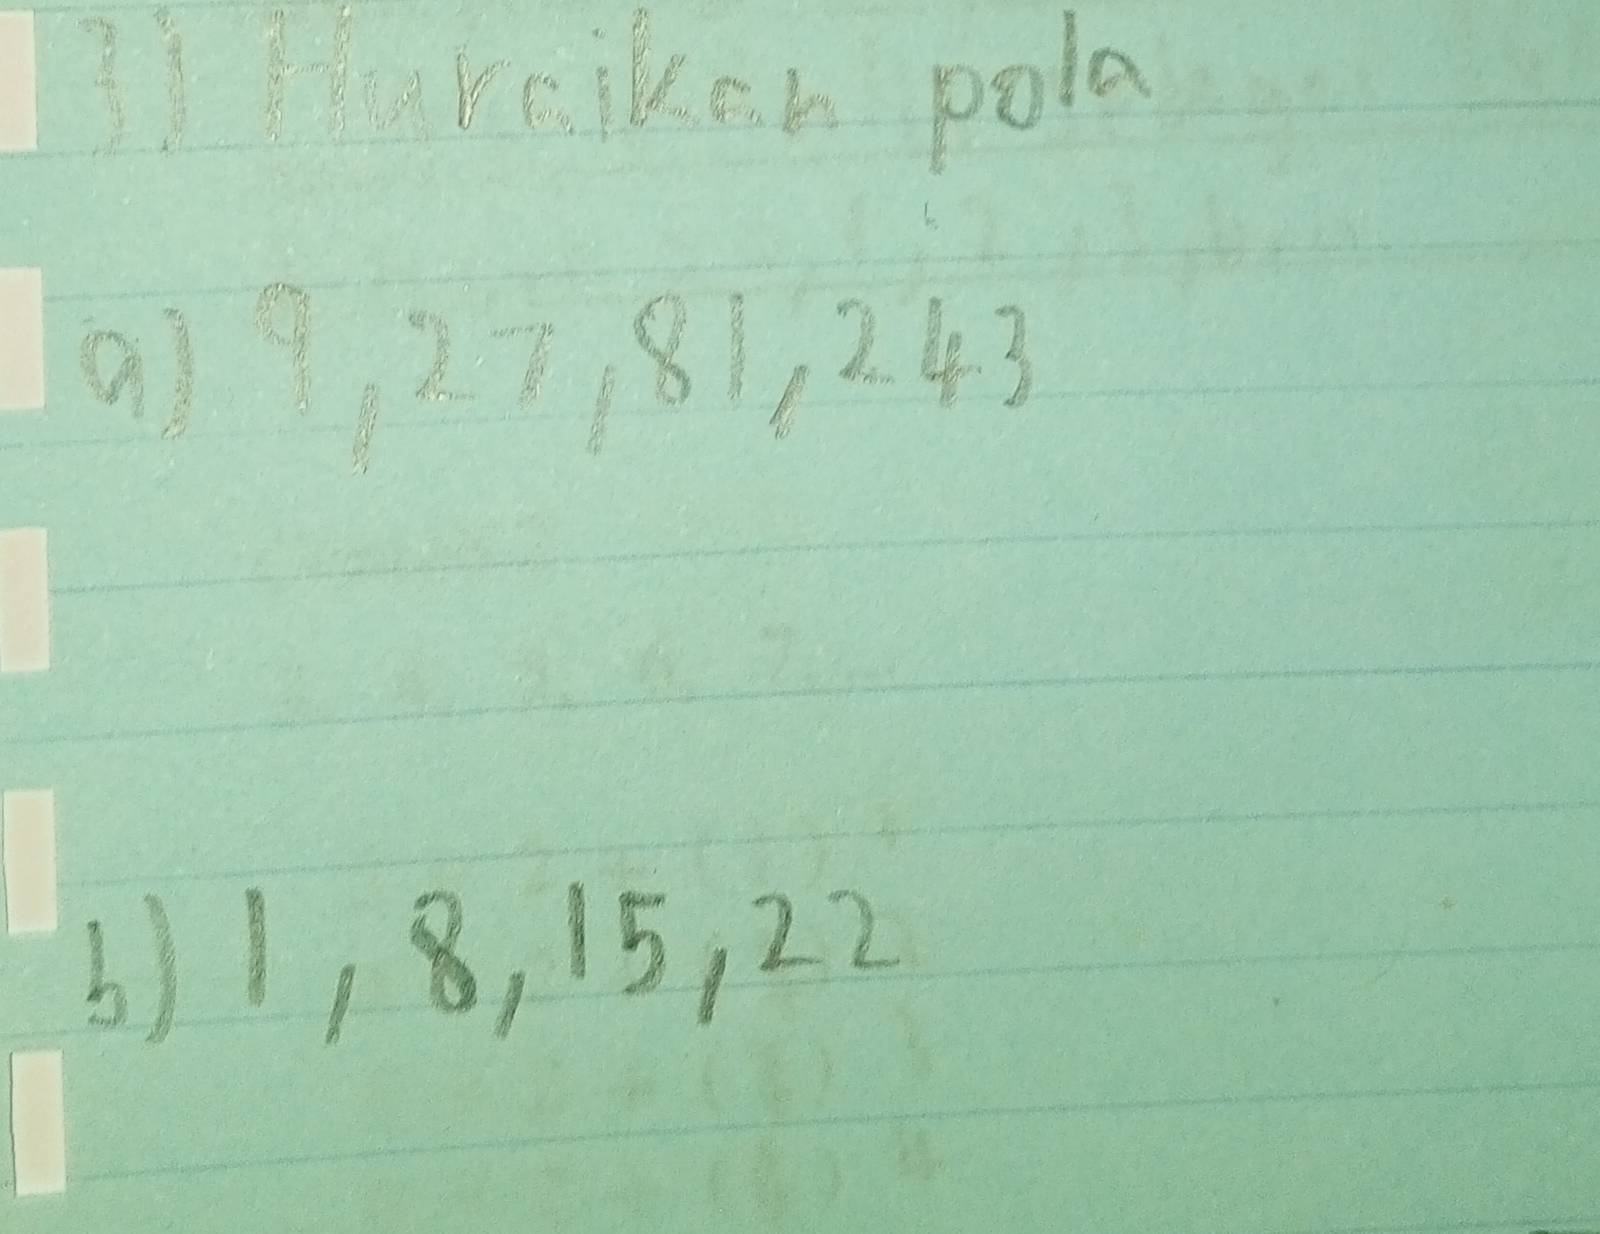 3) Huraikan pola
a) 9, 27, 81, 243
b) 1, 8, 15, 22